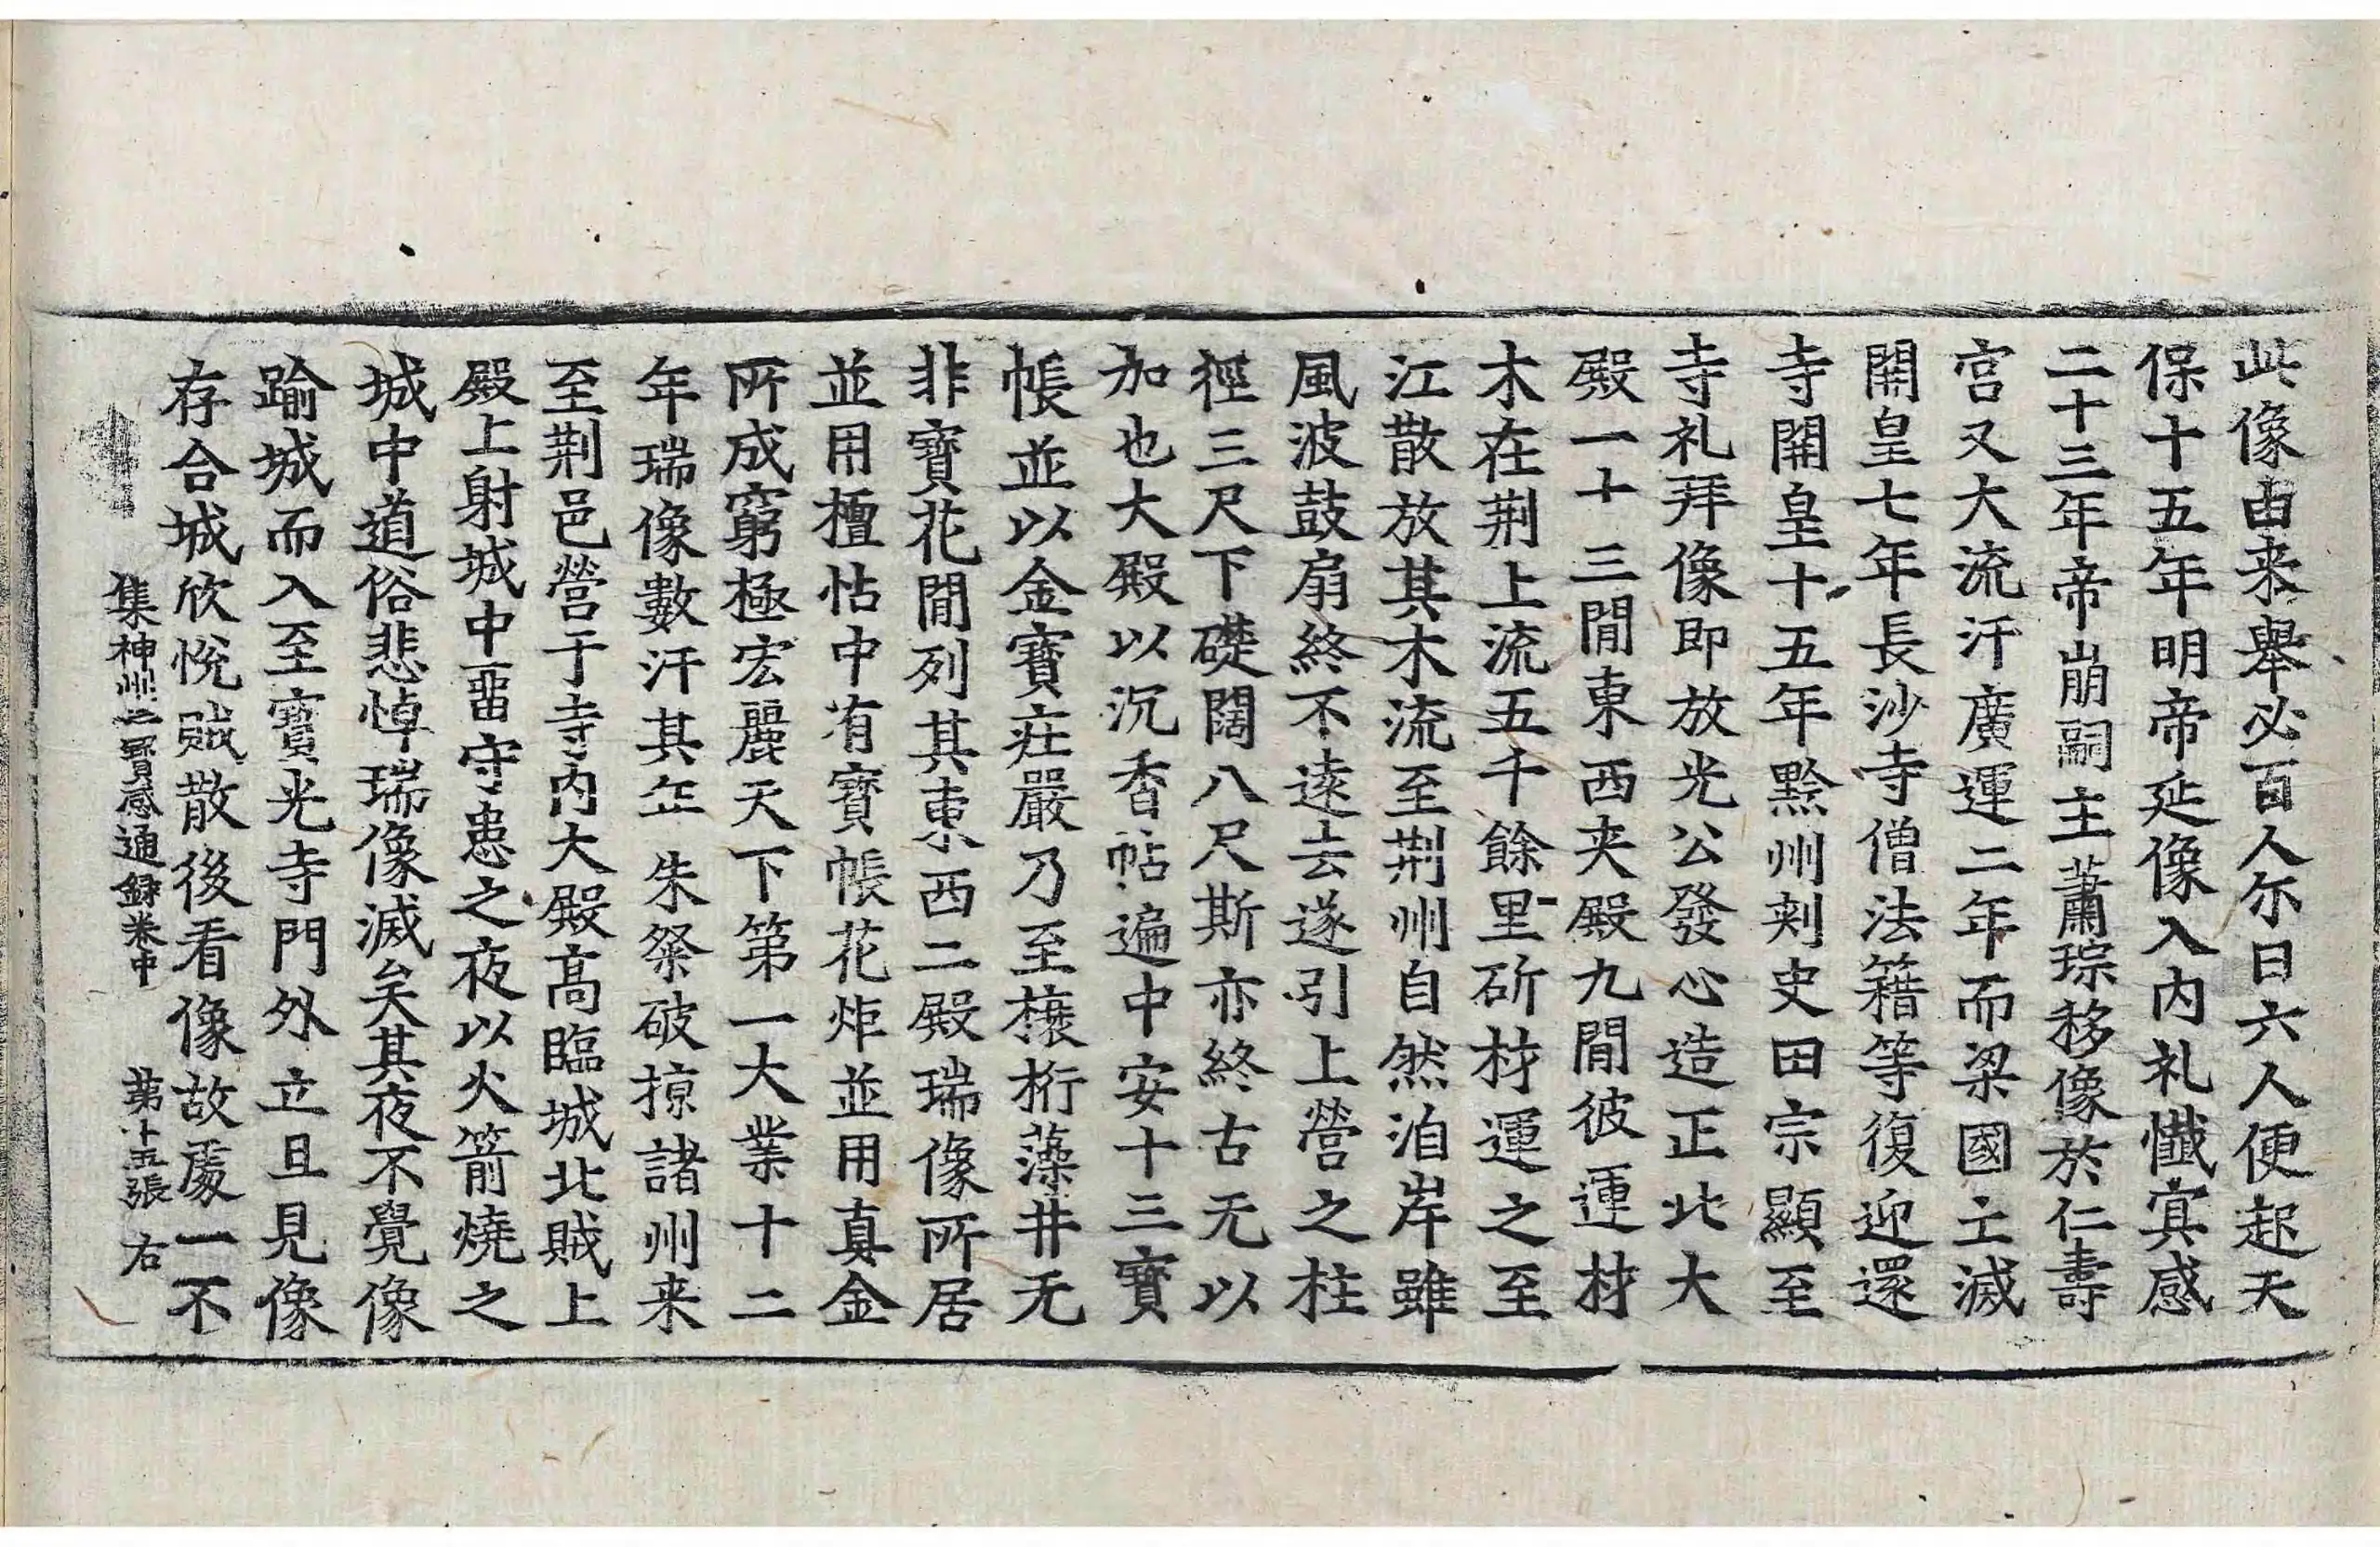 此像由来舉必百人尓日六人便起天
保十五年明帝延像入内礼懺㝠感
二十三年帝崩嗣主蕭琮移像於仁壽
宮又大流汗廣運二年而梁國立滅
開皇七年長沙寺僧法籍等復迎還
寺開皇十五年黔州刾史田宗顯至
寺礼拜像即放光公發心造正北大
殿一十三閒東西夾殿九閒彼運材
木在荆上流五千餘里斫材運之至
江散放其木流至荆州自然泊岸雖
風波鼓扇終不遠去遂引上營之柱
徑三尺下礎闊八尺斯亦終古无以
加也大殿以沉香帖遍中安十三寶
帳並以金寶莊嚴乃至榱桁藻井无
非寶花閒列其東西二殿瑞像所居
並用檀怗中有寶帳花炬並用真金
所成窮極宏麗天下第一大業十二
年瑞像數汗其年朱粲破掠諸州来
至荆邑營于寺内大殿髙臨城北賊上
殿上射城中畱守患之夜以火箭燒之
城中道俗悲悼瑞像滅矣其夜不覺像
踰城而入至寶光寺門外立且見像
存合城欣悅賊散後看像故處一不
集神州三寶感通録卷中 苐十五張 右